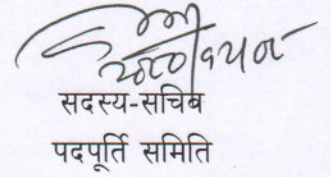 सदस्य-सचिब
पदपूर्ति समिति